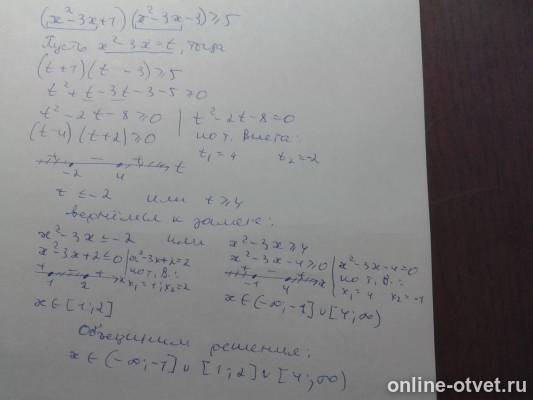 (x²-3x+1)(x²-3x-3)≥5
Пусть x²-3x=t, тогда
(t+1)(t-3)≥5
t²+t-3t-3-5≥0
t²-2t-8≥0 | t²-2t-8=0
(t-4)(t+2)≥0 | по т. Виета:
t₁=4 t₂=-2
+ - + t
-2 4
t≤-2 или t≥4
вернёмся к замене:
x²-3x≤-2 или x²-3x≥4
x²-3x+2≤0 | x²-3x+2=2 x²-3x-4≥0 | x²-3x-4=0
по т. В.: по т. В.:
+ - + x x₁=1; x₂=2 + - + x x₁=4 x₂=-1
1 2 -1 4
x∈[1;2] x∈(-∞;-1]∪[4;∞)
Объединим решения:
x∈(-∞;-1]∪[1;2]∪[4;∞)
online-otvet.ru